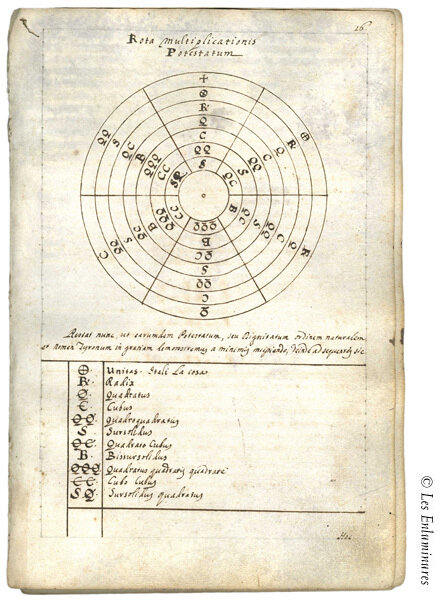 16
Rota multiplicationis
Potestatum
☩
⊕
R
Q
C
QQ
S
Restat nunc, ut earumdem Potestatum, seu Dignitatum ordinem naturalem
et nomen Tyronum in gratiam demonstremus a minimis incipiendo, deinde ad sequentes sic
⊕ Unitas. Itali La cosa
R. Radix
Q. Quadratus
C. Cubus
QQ quadroquadratus
S Sursolidus
QC Quadrato Cubus
B. Bissursolidus
QQQ Quadratus quadratis quadrate
CC Cubo Cubus
SQ Sursolidus quadratus
© Les Enluminures